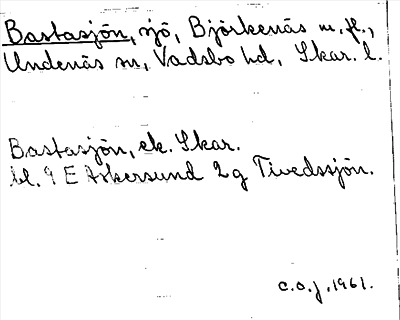 Bastasjön, sjö, Björkenäs m. fl.,
Undenäs sn, Vadsbo hd, Skar. l.
Bastasjön, ek. Skar.
bl. 9 E Askersund 2g Tivedssjön.
C.O.J. 1961.